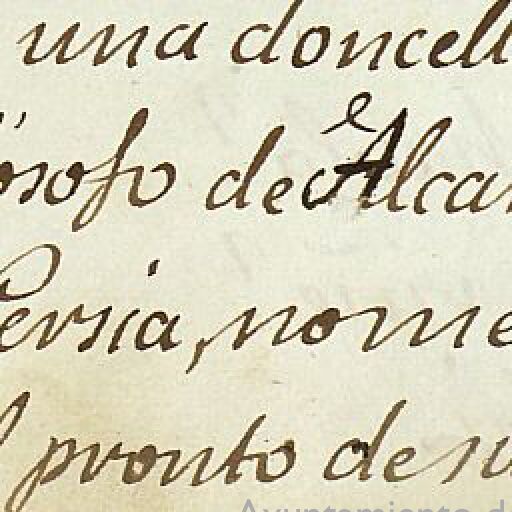 una doncell
osofo de Alcar
Persia, nome
l pronto de su
Ayuntamiento d